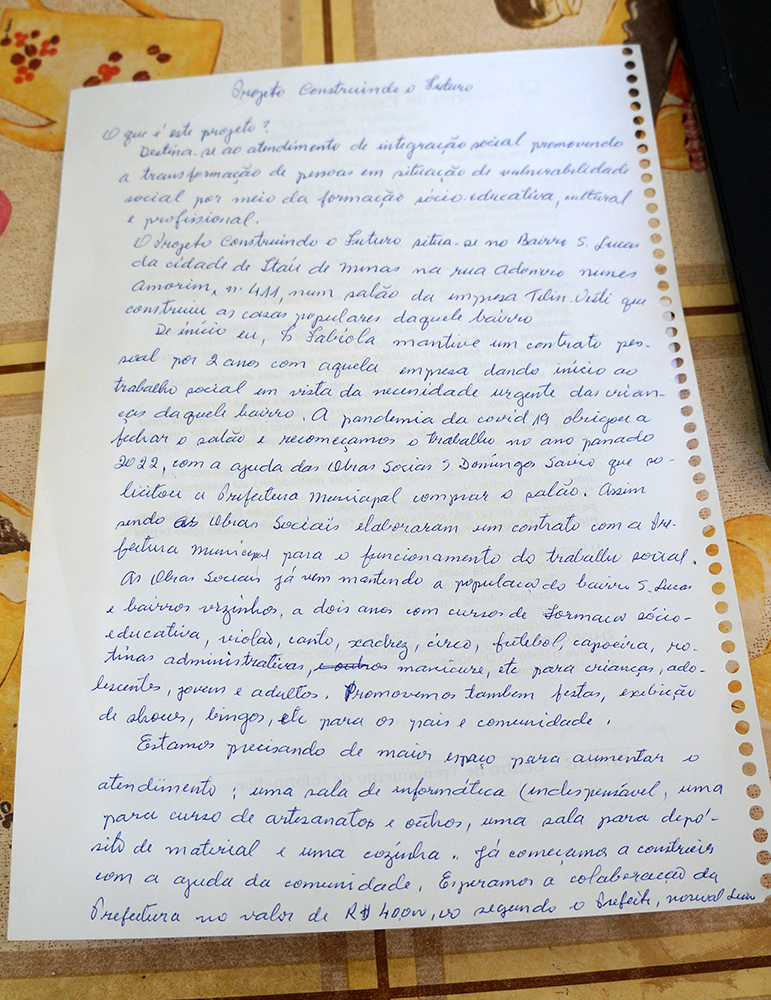 Projeto Construindo o Futuro
O que é este projeto?
Destina-se ao atendimento de integração social promovendo
a transformação de pessoas em situação de vulnerabilidade
social por meio da formação sócio-educativa, cultural
e profissional.
O Projeto Construindo o Futuro situa-se no Bairro S. Lucas
da cidade de Itaú de Minas na rua Adenoro nunes
Amorim, nº 411, num salão da empresa Tilin Vesti que
construiu as casas populares daquele bairro
De início eu, Ir Fabíola mantive um contrato pes-
soal por 2 anos com aquela empresa dando início ao
trabalho social em vista da necessidade urgente das crian-
ças daquele bairro. A pandemia da covid 19 obrigou a
fechar o salão e recomeçamos o trabalho no ano passado
2022, com a ajuda das Obras Sociais S Domingos Savio que so-
licitou a Prefeitura Municipal comprar o salão. Assim
sendo as Obras Sociais elaboraram um contrato com a Pre-
feitura Municipal para o funcionamento do trabalho social.
As Obras Sociais já vem mantendo a população do bairro S. Lucas
e bairros vizinhos, a dois anos com cursos de Formaco sócio-
educativa, violão, canto, xadrez, circo, futebol, capoeira, ro-
tinas administrativas, e outros manicure, etc para crianças, ado-
lescentes, jovens e adultos. Promovemos tambem festas, exibição
de shows, bingos, etc para os pais e comunidade.
Estamos precisando de maior espaço para aumentar o
atendimento; uma sala de informática (indespensável, uma
para curso de artesanatos e outros, uma sala para depó-
sito de material e uma cozinha. Já começamos a construir
com a ajuda da comunidade. Esperamos a colaboração da
Prefeitura no valor de R$ segundo o Prefeito, norival